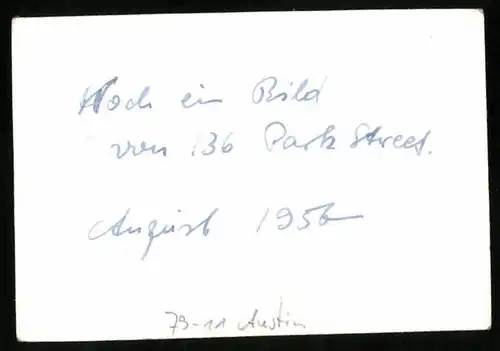 Noch ein Bild
von 136 Park Street.
August 1956
79-11 Austin